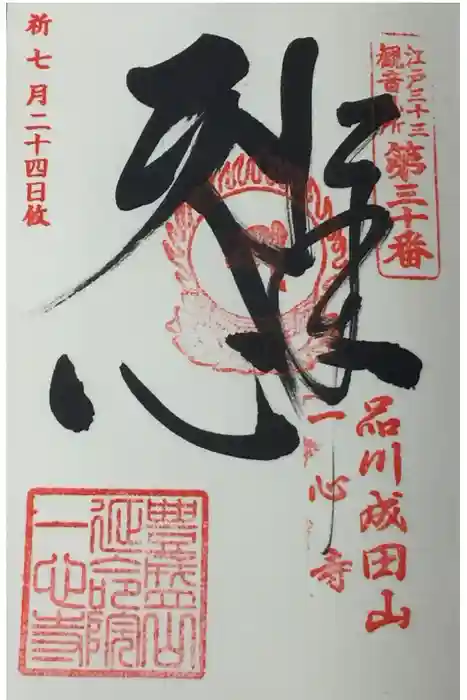 江戸三十三
觀音札所
第三十番
品川成田山
一心寺
祈七月二十四日攸
豊盛山
延命院
一心寺